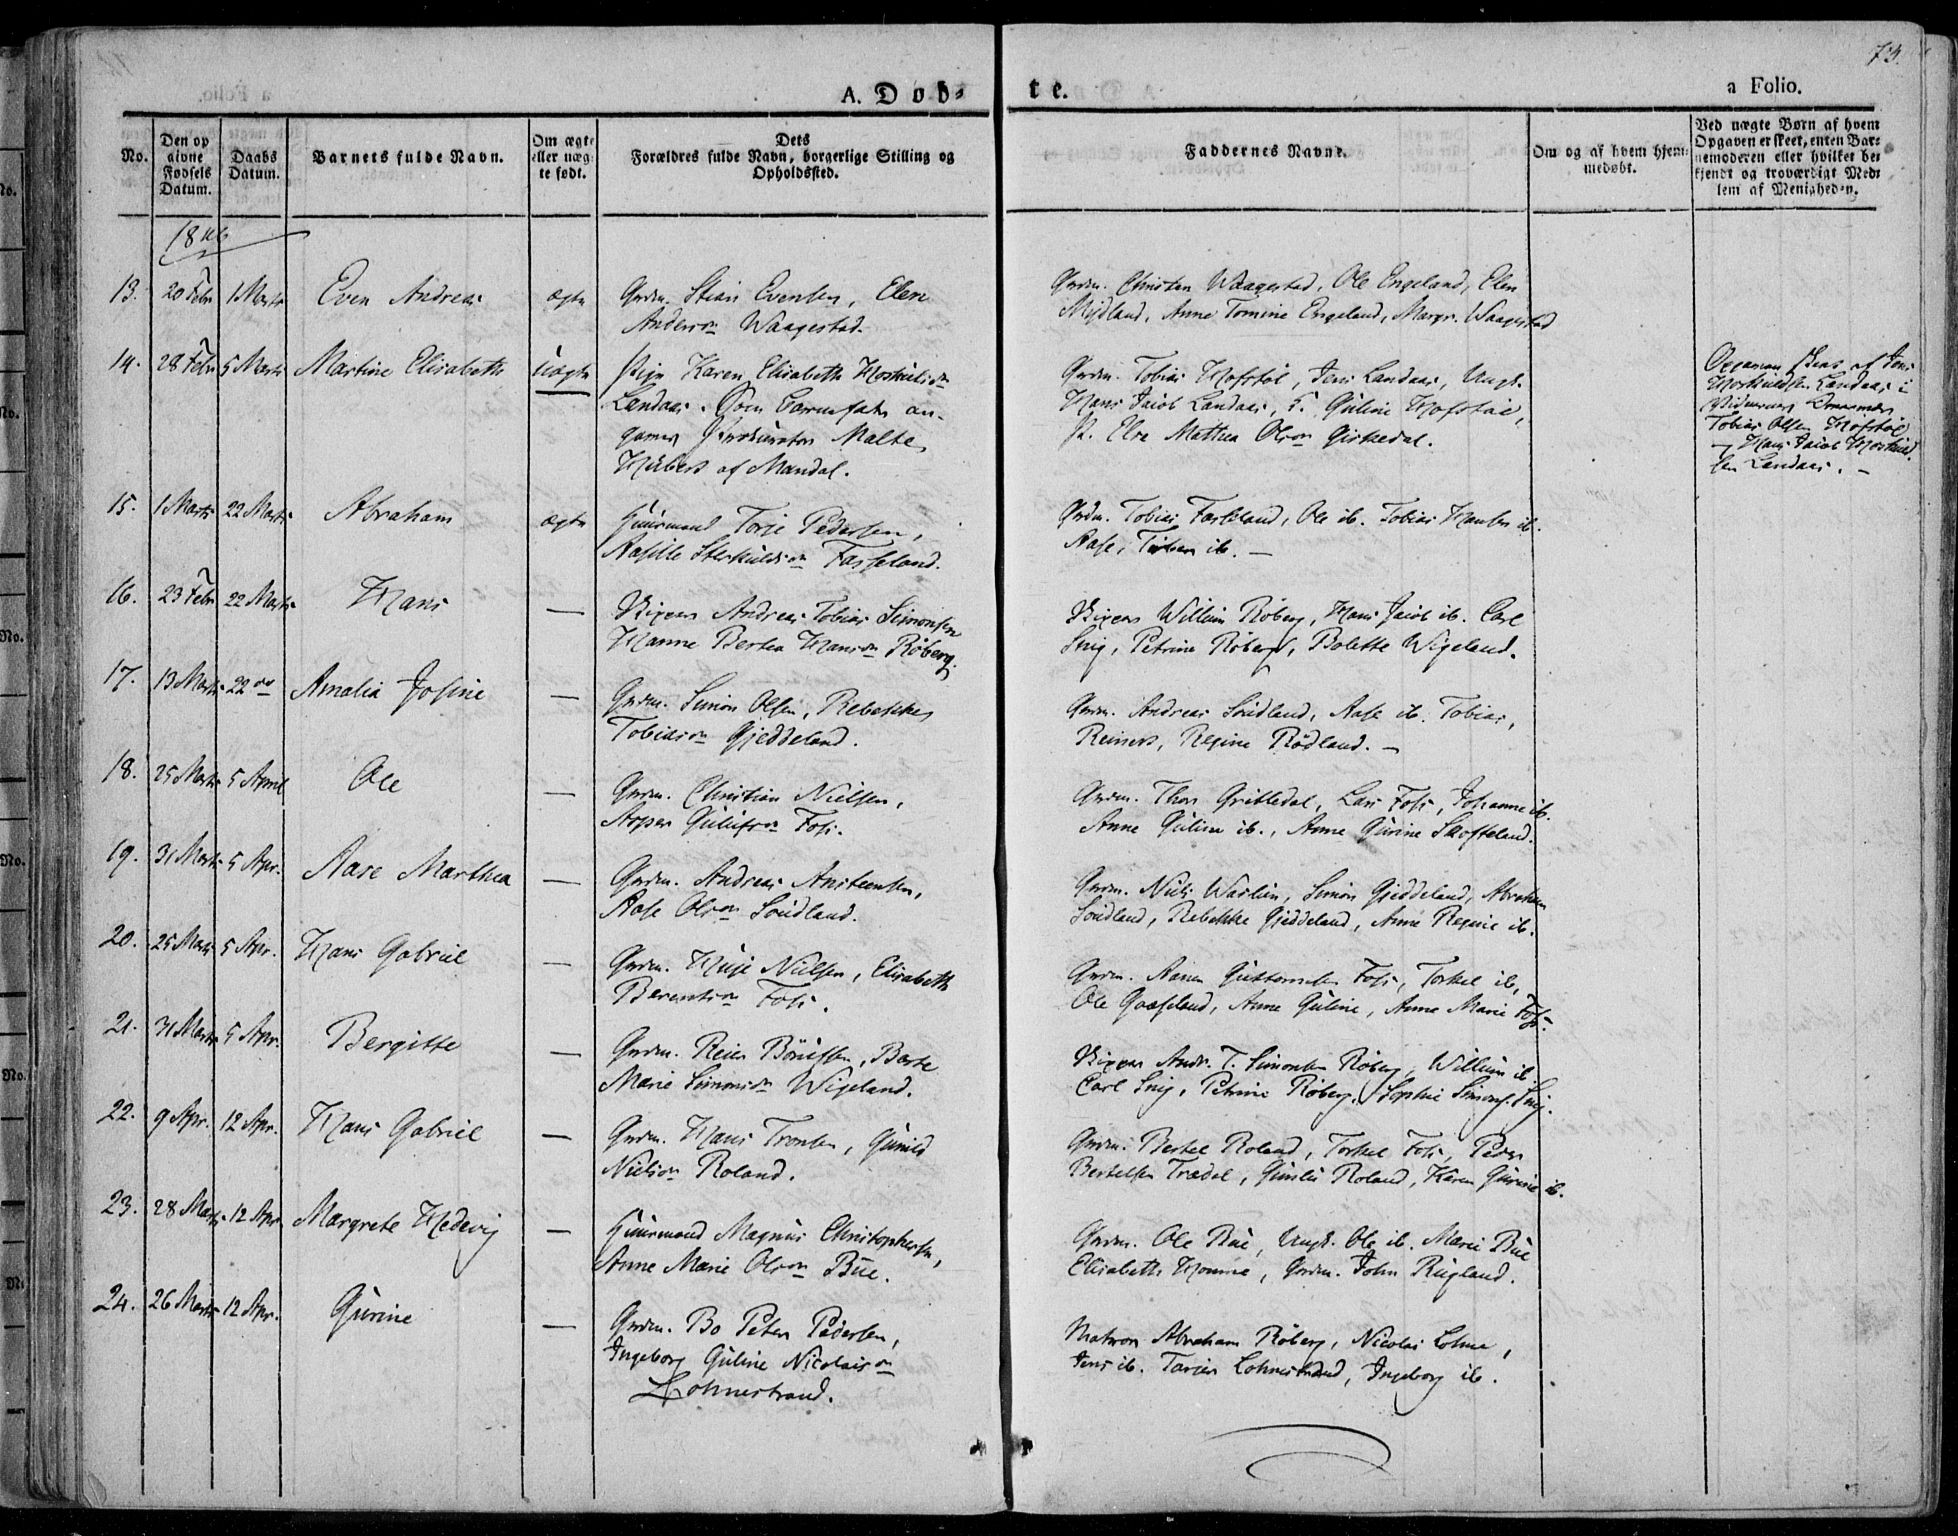 73.
A. Døb-
te.
a Folio.
No.
Den op
givne
Fødsels
Datum.
Daabs
Datum.
Barnets fulde Navn.
Om ægte
eller uæg-
te født.
Dets
Forældres fulde Navn, borgerlige Stilling og
Opholdssted.
Faddernes Navne.
Om og af hvem hjem-
medøbt.
Ved uægte Børn af hvem
Opgaven er skeet, enten Bar-
nemoderen eller hvilket be-
kjendt og troværdigt Med-
lem af Menigheden.
1846
13. 20 Febr 1 Marts Even Andreas ægte Grdm. Stian Evensen, Elen
Andersdn Waagestad.
Grdm. Christen Waagestad, Ole Engeland, Elen
Mydland, Anne Tomine Engeland, Margr. Waagestad
14. 28 Febr 5 Marts Martine Elisabeth uægte Pige Karen Elisabeth Hoskuldsdn
Landaas. Som Barnefader an-
gaves Prokurator Malte
Hubert af Mandal.
Grdm. Tobias Hofstøl, Jens Landaas, Ungk.
Hans Jacob Landaas, G. Guline Hofstøl,
P. Elen Mathea Olsdn Giskedal.
Opgaven skeet af Jens
Hoskuldsn Landaas i
Tobias Olsen Hofstøl
og Hans Jacob Hoskuld-
sen Landaas. -
15. 1 Marts 22 Marts Abraham ægte Huusmand Torje Pedersen,
Aasille Sterkuldsdn Fasseland.
Grdm. Tobias Fasseland, Ole ib. Tobias ib.
Aase, ib. -
16. 23 Febr 22 Marts Hans — Skipper Andreas Tobias Simonsen
Hanne Bertea Hansdn Røberg.
Skipper Willum Røberg, Hans Jacob ib. Carl
Snig, Petrine Røberg, Bolette Wigeland.
17. 13 Marts 22 do Amalia Josine — Grdm. Simon Olsen, Rebekke
Tobiasdn Gjeddeland.
Grdm. Andreas Soudland, Aase ib. Tobias,
Reinert, Regine Rødland. -
18. 25 Marts 5 April Ole — Grdm. Christian Nielsen,
Asper Gulufsdn Foss.
Grdm. Thor Gribledal, Lars Foss, Johanne ib.
Anne Guline ib., Anne Gurine Skofteland.
19. 31 Marts 5 Apr. Aase Marthea — Grdm. Andreas Anstensen,
Aase Olsdn Soudland.
Grdm. Niels Warlien, Simon Gjeddeland, Abraham
Soudland, Rebekke Gjeddeland, Anne Regine ib.
20. 25 Marts 5 Apr. Hans Gabriel — Grdm. Huje Nielsen, Elisabeth
Berentsdn Foss.
Grdm. Aanen Guttormsen Foss, Torkel ib,
Ole Gaaseland, Anne Guline, Anne Marie Foss.
21. 31 Marts 5 Apr. Bergitte — Grdm. Reier Børuffsen, Berte
Marie Simonsdn Wigeland.
Skipper Andr. T. Simonsen Røberg, Willum ib
Carl Snig, Petrine Røberg, Sophie Simons. Snig.
22. 9 Apr. 12 Apr. Hans Gabriel — Grdm. Hans Tronsen, Gunild
Nielsdn Roland.
Grdm. Bertel Roland, Torkel Foss, Peder
Bertelsen Trædal, Gunild Roland, Karen Gurine ib.
23. 28 Marts 12 Apr Margrete Hedevig — Huusmand Magnus Christophersen,
Anne Marie Olsdn Bue.
Grdm. Ole Bue, Ungk. Ole ib. Marie Bue
Elisabeth Homme, Grdm. John Rugland.
24. 26 Marts 12 Apr. Gurine — Grdm. Bo Peter Pedersen,
Ingeborg Guline Nicolaisdn
Lohnestrand.
Matros Abraham Røberg, Nicolai Lohne,
Jens ib. Tarjer Lohnestrand, Ingeborg ib.